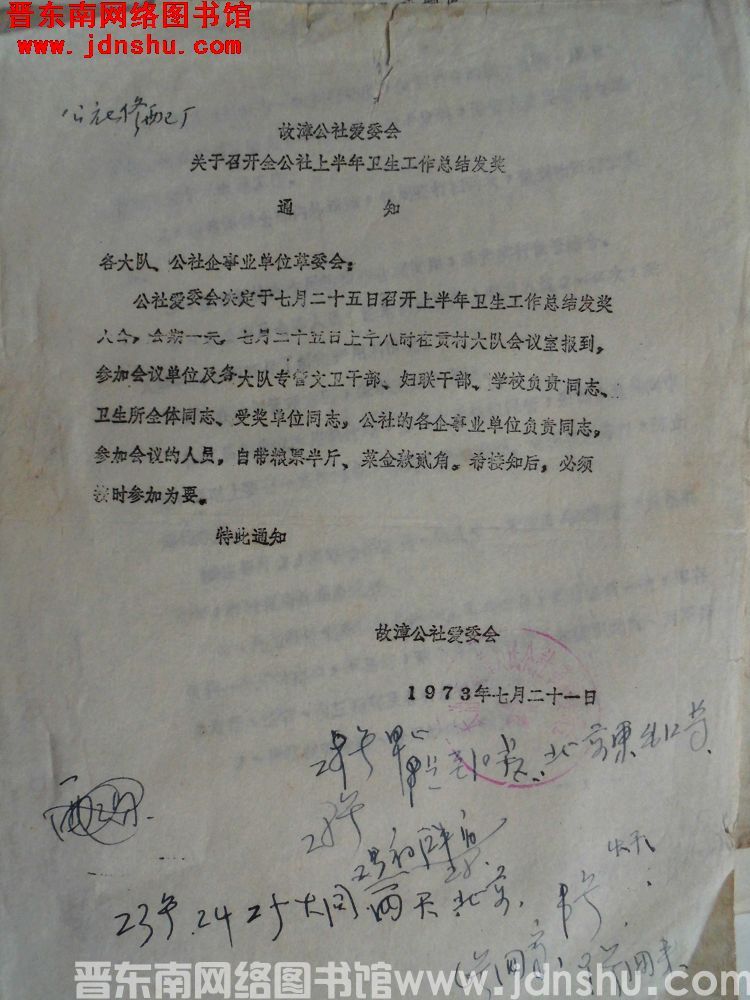 晋东南网络图书馆
www.jdnshu.com
公社修配厂
故漳公社爱委会
关于召开全公社上半年卫生工作总结发奖
通 知
各大队、公社企事业单位革委会：
公社爱委会决定于七月二十五日召开上半年卫生工作总结发奖
大会，会期一天，七月二十五日上午八时在贡村大队会议室报到，
参加会议单位及各大队专管文卫干部、妇联干部、学校负责同志、
卫生所全体同志、受奖单位同志，公社的各企事业单位负责同志，
参加会议的人员，自带粮票半斤、菜金款贰角。希接知后，必须
按时参加为要。
特此通知
故漳公社爱委会
1973年七月二十一日
24 25 大同 两天 北京
晋东南网络图书馆 www.jdnshu.com